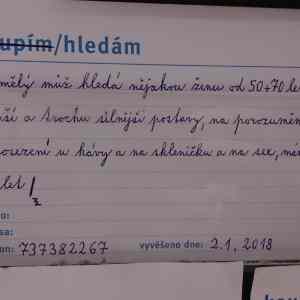 upím/hledám
mělý muž hledá nějakou ženu od 50+70 le
ší a trochu silnější postavy, na porozumě
osezení u kávy a na skleničku a na sex, má
let
o:
sa:
on: 737382267 vyvěšeno dne: 2.1.2018